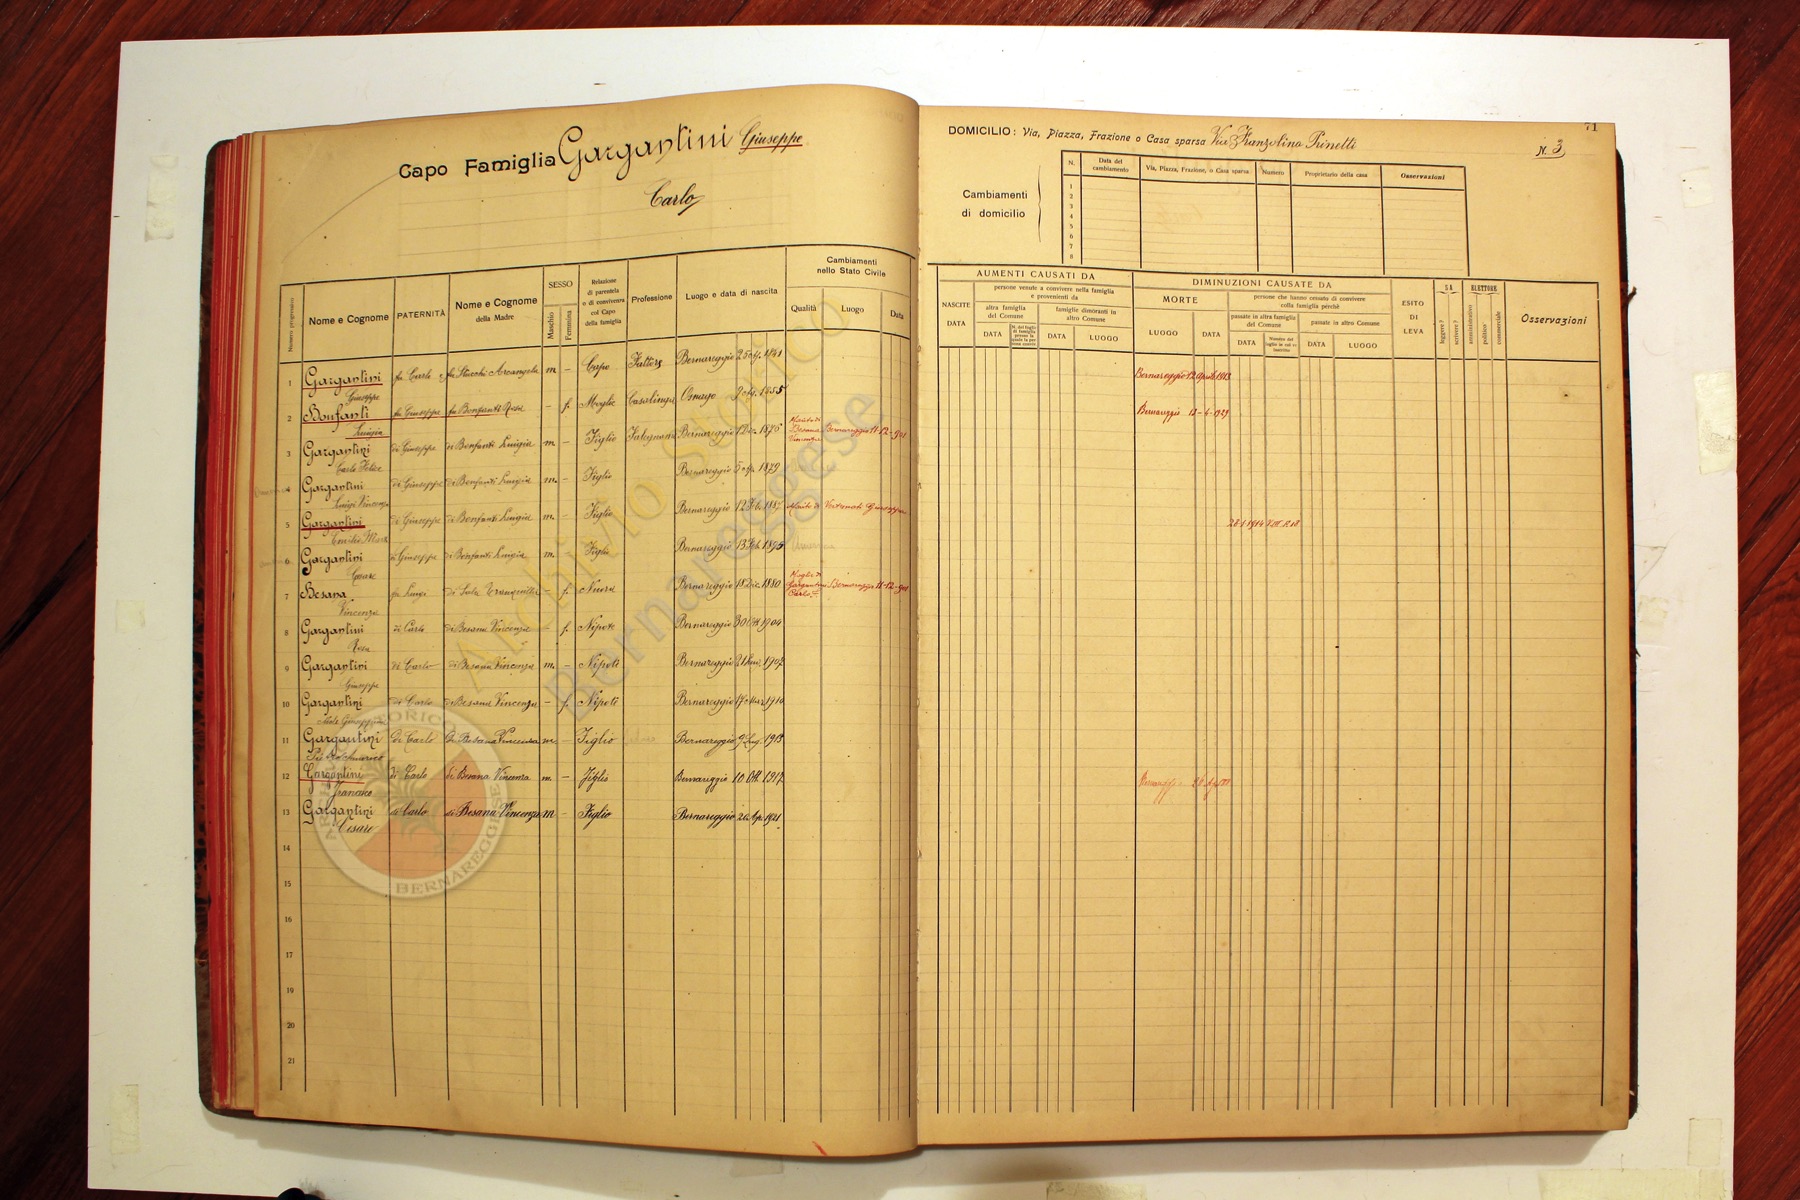 Capo Famiglia Gargantini Giuseppe
Carlo
71
DOMICILIO: Via, Piazza, Frazione o Casa sparsa Via Franzolina Prinetti
N. 3
Cambiamenti di domicilio
N. Data del cambiamento Via, Piazza, Frazione, o Casa sparsa Numero Proprietario della casa Osservazioni
1
2
3
4
5
6
7
8
Numero progressivo
Nome e Cognome
PATERNITÀ
Nome e Cognome della Madre
SESSO
Maschio
Femmina
Relazione di parentela e di convivenza col Capo della famiglia
Professione
Luogo e data di nascita
Cambiamenti nello Stato Civile
Qualità Luogo Data
AUMENTI CAUSATI DA
NASCITE
DATA
persone venute a convivere nella famiglia e provenienti da
altra famiglia del Comune
DATA
famiglie dimoranti in altro Comune
DATA LUOGO
DIMINUZIONI CAUSATE DA
MORTE
LUOGO DATA
persone che hanno cessato di convivere colla famiglia perchè
passate in altra famiglia del Comune
DATA
passate in altro Comune
DATA LUOGO
ESITO DI LEVA
SA
leggere?
scrivere?
ELETTORE
amministrativo
politico
commerciale
Osservazioni
1 Gargantini Giuseppe fu Carlo fu Stucchi Arcangela m. – Capo Fattore Bernareggio 1841 Bernareggio 12 Aprile 1913
2 Bonfanti Luigia fu Giuseppe fu Bonfanti Rosa – f. Moglie Casalinga Osnago 1855 Bernareggio 1929
3 Gargantini Carlo Felice di Giuseppe di Bonfanti Luigia m. – Figlio Falegname Bernareggio 1 Dic. 1875 Marito di Besana Vincenza Bernareggio 11-12-901
4 Gargantini Luigi Vincenzo di Giuseppe di Bonfanti Luigia m. – Figlio Bernareggio 1879
5 Gargantini Emilio di Giuseppe di Bonfanti Luigia m. – Figlio Bernareggio 12 Feb. 1887 Marito di Giuseppa 28-1-1914
6 Gargantini Cesare di Giuseppe di Bonfanti Luigia m. – Figlio Bernareggio 13 Feb 1895
7 Besana Vincenza fu Luigi di Sala Tranquilla – f. Nuora Bernareggio 18 Dic. 1880 Moglie di Gargantini Carlo F. Bernareggio 11-12-901
8 Gargantini Rosa di Carlo di Besana Vincenza – f. Nipote Bernareggio 30 Ott 1904
9 Gargantini Giuseppe di Carlo di Besana Vincenza m. – Nipote Bernareggio 1907
10 Gargantini Giuseppina di Carlo di Besana Vincenza – f. Nipote Bernareggio 17 Mar. 1910
11 Gargantini di Carlo di Besana Vincenza m. – Figlio Bernareggio 9 Lug. 1913
12 Gargantini Francesco di Carlo di Besana Vincenza m. – Figlio Bernareggio 10 Ott. 1917 Bernareggio
13 Gargantini Cesare di Carlo di Besana Vincenza m – Figlio Bernareggio 1921
14
15
16
17
18
19
20
21
Archivio Storico
Bernareggese
ARCHIVIO STORICO
BERNAREGGESE